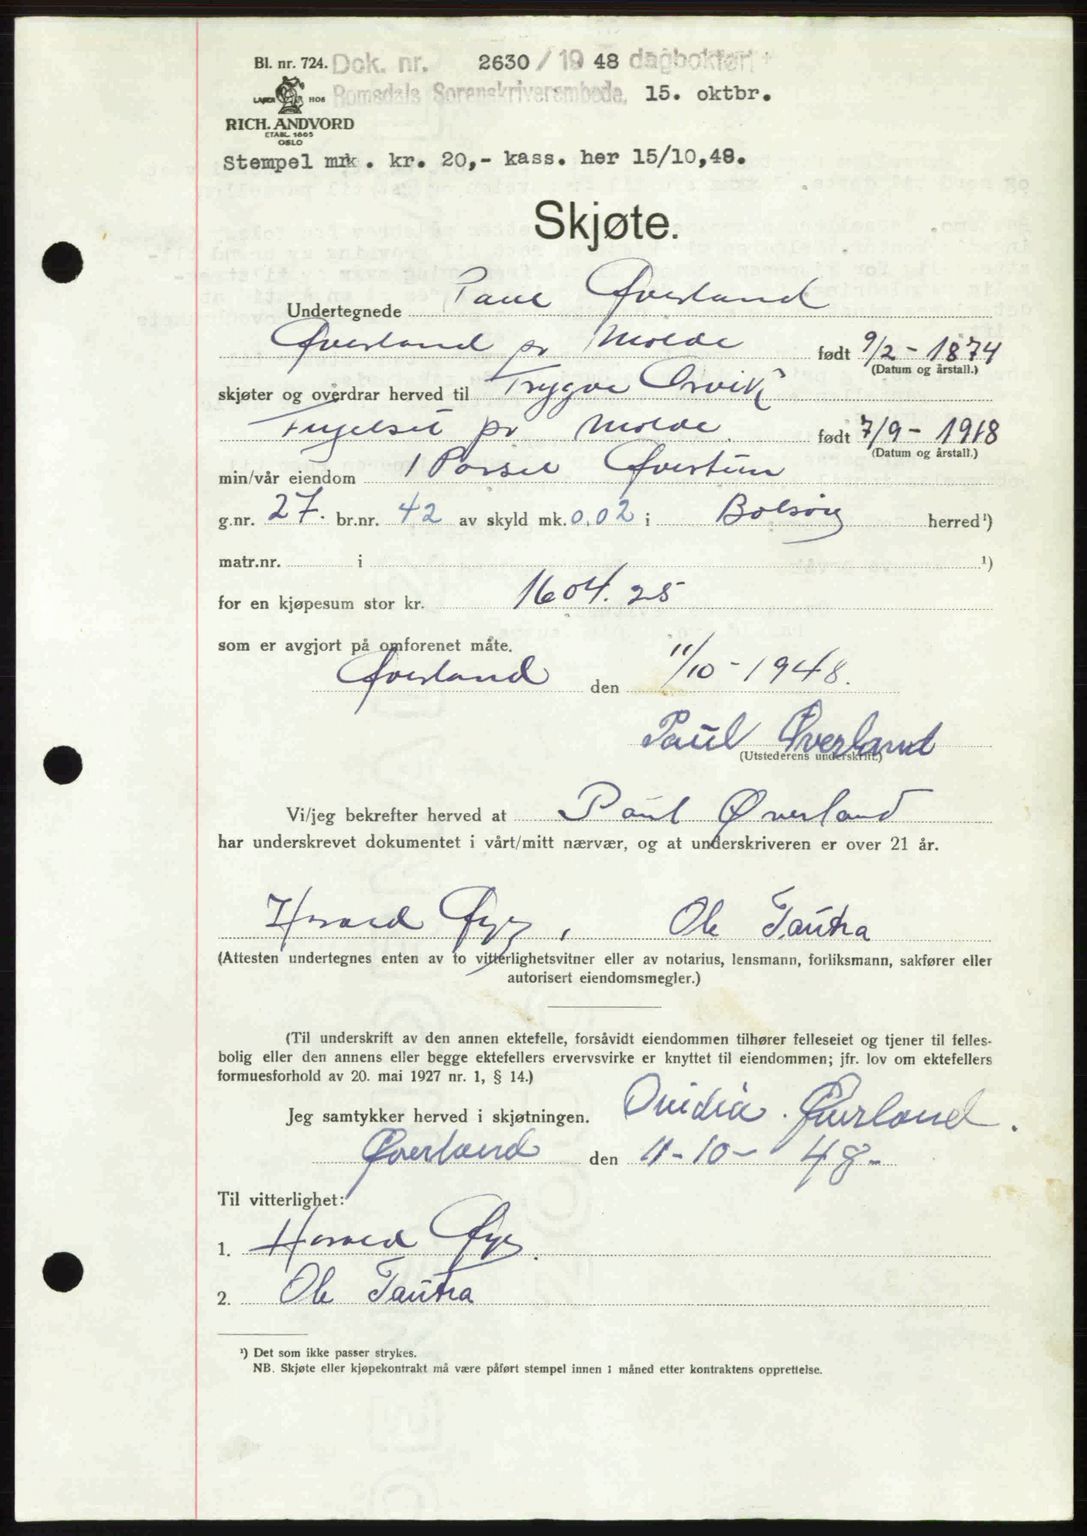 Bl. nr. 724. Dok. nr. 2630 / 19 48 dagbokført
Romsdals Sorenskriverembede, 15. oktbr.
LAGER HOS
RICH. ANDVORD
ETABL. 1865
OSLO
Stempel mrk. kr. 20,- kass. her 15/10,48.
Skjøte.
Undertegnede Paul Øverland
Øverland pr Molde født 9/2 - 1874
(Datum og årstall.)
skjøter og overdrar herved til Trygve Orvik
pr Molde. født 7/9 - 1918
(Datum og årstall.)
min/vår eiendom 1 Parsel
g.nr. 27. br.nr. 42 av skyld mk. 0,02 i Bolsøy herred¹)
matr.nr. i ¹)
for en kjøpesum stor kr. 1604.25
som er avgjort på omforenet måte.
Øverland den 11/10 - 1948.
Paul Øverland
(Utstederens underskrift.)
Vi/jeg bekrefter herved at Paul Øverland
har underskrevet dokumentet i vårt/mitt nærvær, og at underskriveren er over 21 år.
Ole Tautra
(Attesten undertegnes enten av to vitterlighetsvitner eller av notarius, lensmann, forliksmann, sakfører eller
autorisert eiendomsmegler.)
(Til underskrift av den annen ektefelle, forsåvidt eiendommen tilhører felleseiet og tjener til felles-
bolig eller den annens eller begge ektefellers ervervsvirke er knyttet til eiendommen; jfr. lov om ektefellers
formuesforhold av 20. mai 1927 nr. 1, § 14.)
Jeg samtykker herved i skjøtningen. Ovidia Øverland.
Øverland den 11-10- 48-
Til vitterlighet:
1.
2. Ole Tautra
¹) Det som ikke passer strykes.
NB. Skjøte eller kjøpekontrakt må være påført stempel innen 1 måned etter kontraktens opprettelse.